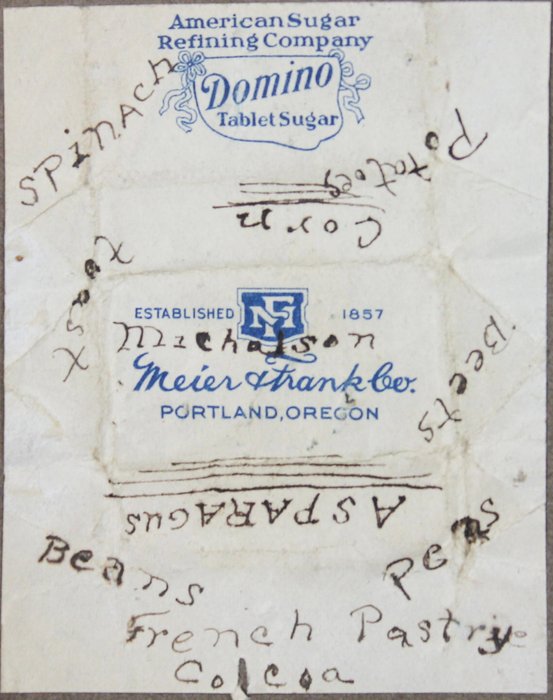 American Sugar
Refining Company
Domino
Tablet Sugar
Spinach
Potatoes
Corn
Yeast
ESTABLISHED 1857
MF
Michalson
Meier & Frank Co.
PORTLAND, OREGON
Beets
ASPARAGUS
Beans
Peas
French Pastrye
Colcoa